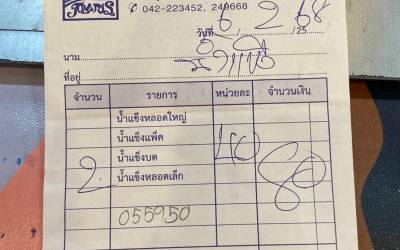 ✆ 042-223452, 249668
วันที่ 6/2/68 /25
นาม
ที่อยู่
จำนวน รายการ หน่วยละ จำนวนเงิน
น้ำแข็งหลอดใหญ่
น้ำแข็งแพ็ค
น้ำแข็งบด
2 น้ำแข็งหลอดเล็ก 40 80
055950